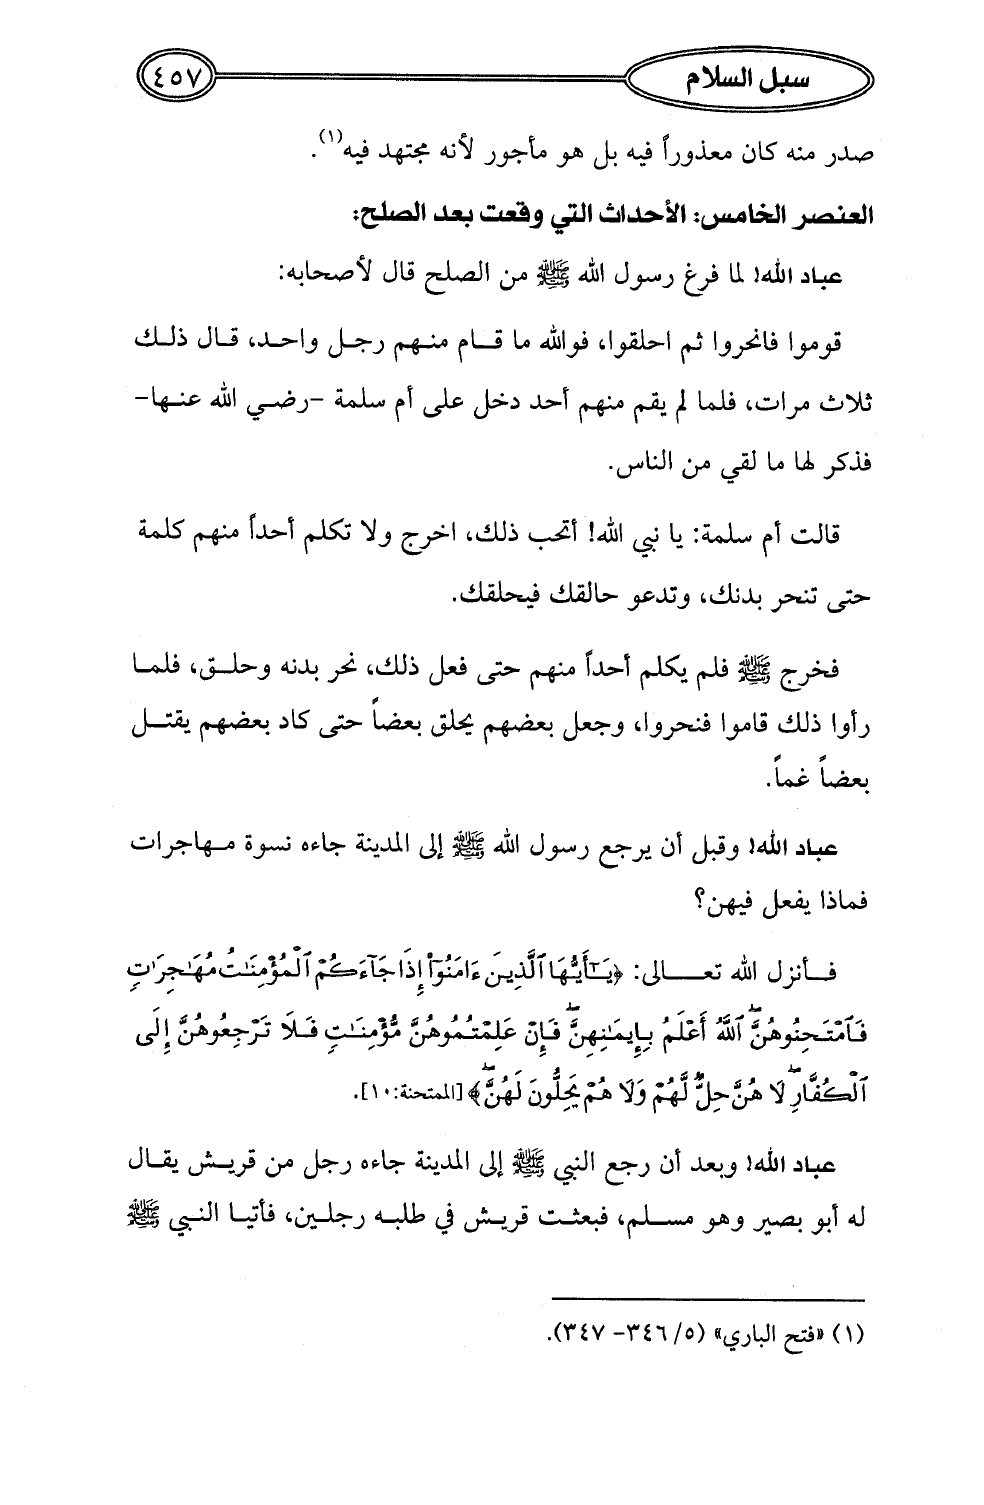 سبل السلام ٤٥٧
صدر منه كان معذوراً فيه بل هو مأجور لأنه مجتهد فيه(١).
العنصر الخامس: الأحداث التي وقعت بعد الصلح:
عباد الله! لما فرغ رسول الله ﷺ من الصلح قال لأصحابه:
قوموا فانحروا ثم احلقوا، فوالله ما قــام منـهم رجـل واحـد، قـال ذلـك
ثلاث مرات، فلما لم يقم منهم أحد دخل على أم سلمة -رضـي الله عنـها-
فذكر لها ما لقي من الناس.
قالت أم سلمة: يا نبي الله! أتحب ذلك، اخرج ولا تكلم أحداً منهم كلمة
حتى تنحر بدنك، وتدعو حالقك فيحلقك.
فخرج ﷺ فلم يكلم أحداً منهم حتى فعل ذلك، نحر بدنه وحلـق، فلمـا
رأوا ذلك قاموا فنحروا، وجعل بعضهم يحلق بعضاً حتى كاد بعضهم يقتـل
بعضاً غماً.
عباد الله! وقبل أن يرجع رسول الله ﷺ إلى المدينة جاءه نسوة مـهاجرات
فماذا يفعل فيهن؟
فــأنزل الله تعــــالى: ﴿يَـٰٓأَيُّهَا ٱلَّذِينَ ءَامَنُوٓا۟ إِذَا جَآءَكُمُ ٱلْمُؤْمِنَـٰتُ مُهَـٰجِرَٰتٍ
فَٱمْتَحِنُوهُنَّ ۖ ٱللَّهُ أَعْلَمُ بِإِيمَـٰنِهِنَّ ۖ فَإِنْ عَلِمْتُمُوهُنَّ مُؤْمِنَـٰتٍ فَلَا تَرْجِعُوهُنَّ إِلَى
ٱلْكُفَّارِ ۖ لَا هُنَّ حِلٌّ لَّهُمْ وَلَا هُمْ يَحِلُّونَ لَهُنَّ ۖ﴾ [الممتحنة:١٠].
عباد الله! وبعد أن رجع النبي ﷺ إلى المدينة جاءه رجل من قريـش يقـال
له أبو بصير وهو مسـلم، فبعثـت قريـش في طلبـه رجلـين، فأتيـا النـبي ﷺ
(١) «فتح الباري» (٥/ ٣٤٦- ٣٤٧).